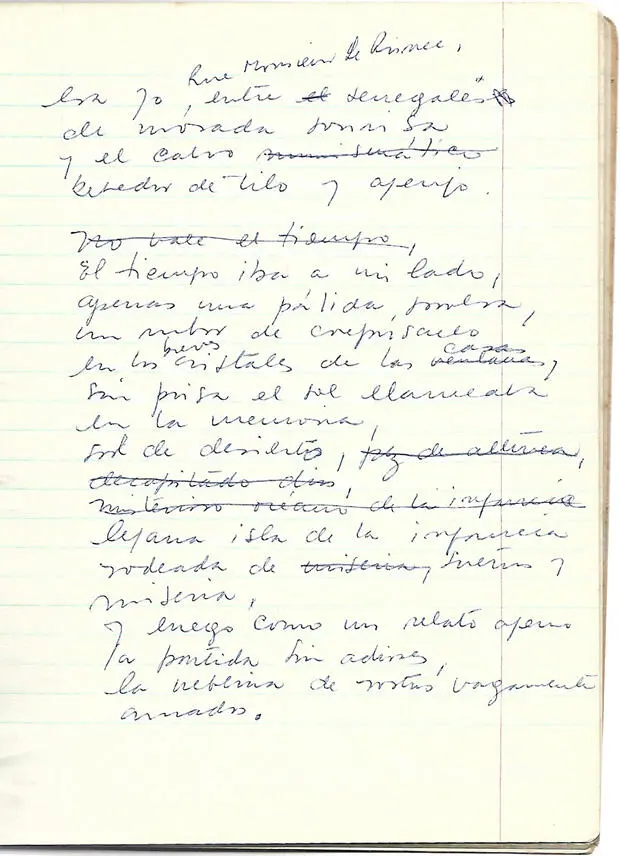 Rue Monsieur Le Prince,
Era yo, entre el senegalés
de morada sonrisa
y el calvo numismático
bebedor de tilo y ajenjo.
No vale el tiempo,
El tiempo iba a mi lado,
apenas una pálida sombra,
un rubor de crepúsculo
en los breves cristales de las ventanas, casas
sin prisa el sol llameaba
en la memoria,
sol de desierto, pez de altura,
decapitado dios,
misterioso océano de la infancia
lejana isla de la infancia
rodeada de miseria, sueños y
miseria,
y luego como un relato ajeno
la partida sin adioses,
la neblina de rostros vagamente
amados.